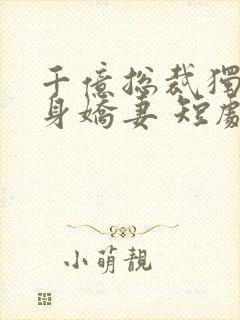 千億总裁獨
身嬌妻 短處
小萌靚